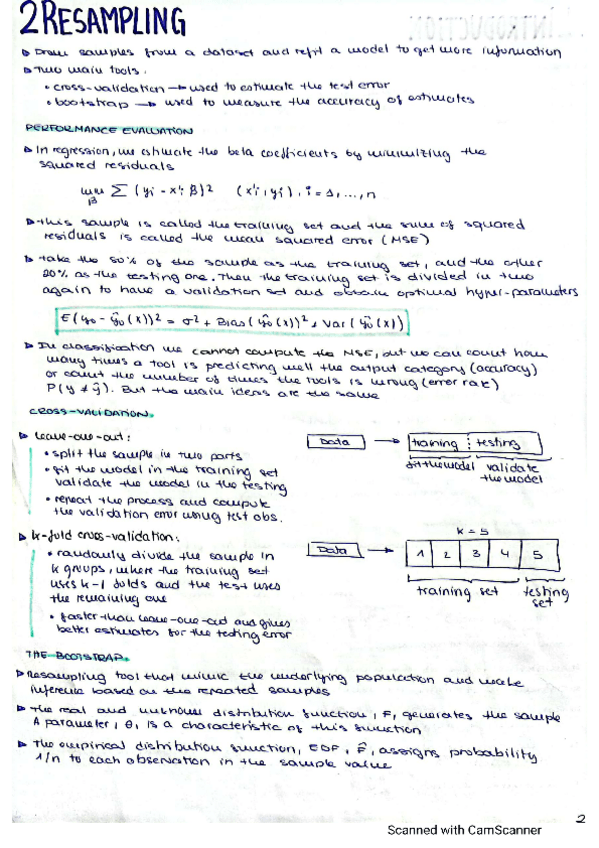 2 RESAMPLING
▷ Draw samples from a dataset and refit a model to get more information
▷ Two main tools:
• cross-validation → used to estimate the test error
• bootstrap → used to measure the accuracy of estimates
PERFORMANCE EVALUATION
▷ In regression, we estimate the beta coefficients by minimizing the
squared residuals
min β Σ (yi - x'i β)² (x'i, yi), i = 1, ..., n
▷ this sample is called the training set and the sum of squared
residuals is called the mean squared error (MSE)
▷ take the 80% of the sample as the training set, and the other
20% as the testing one. Then the training set is divided in two
again to have a validation set and obtain optimal hyper-parameters
E(y0 - ŷ0(x))² = σ² + Bias(ŷ0(x))² + Var(ŷ0(x))
▷ In classification we cannot compute the MSE, but we can count how
many times a tool is predicting well the output category (accuracy)
or count the number of times the tools is wrong (error rate)
P(y ≠ ŷ). But the main ideas are the same
CROSS-VALIDATION.
▷ leave-one-out:
• split the sample in two parts
• fit the model in the training set
validate the model in the testing
• repeat the process and compute
the validation error using test obs.
Data → training testing
fit the model validate
the model
▷ k-fold cross-validation:
• randomly divide the sample in
k groups, where the training set
uses k-1 folds and the test uses
the remaining one
• faster than leave-one-out and gives
better estimates for the testing error
k = 5
Data → 1 2 3 4 5
training set testing
set
THE BOOTSTRAP.
▷ Resampling tool that mimic the underlying population and make
inference based on the repeated samples
▷ The real and unknown distribution function, F, generates the sample
A parameter, θ, is a characteristic of this function
▷ The empirical distribution function, EDF, F̂, assigns probability
1/n to each observation in the sample value
2
Scanned with CamScanner